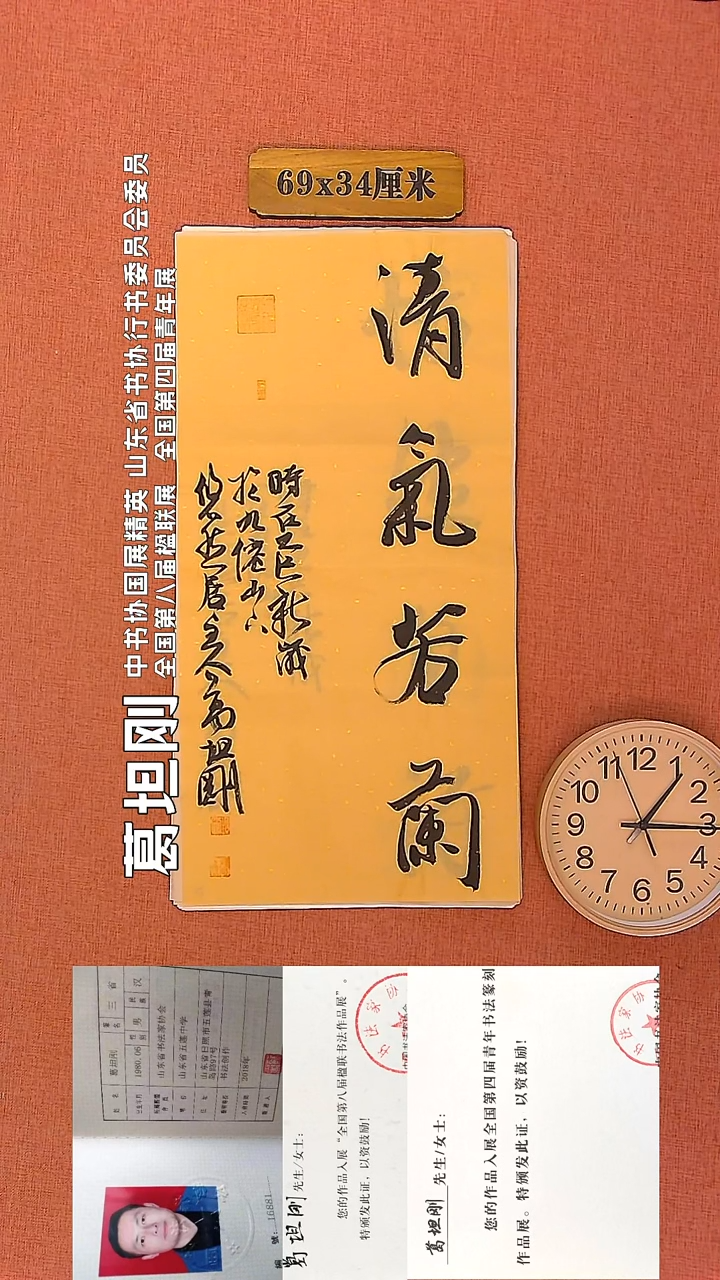 69x34厘米
清氣若蘭
時在乙巳秋月
於九僊山下
悠然居主人葛坦剛
葛坦刚
中书协国展精英 山东省书协行书委员会委员
全国第八届楹联展 全国第四届青年展
11 12 1
10 2
9 3
8 4
7 6 5
葛坦刚
1980.06 男 汉
山东省书法家协会
山东省五莲中学
书法创作
2018年
號：16881
葛坦刚 先生/女士：
您的作品入展“全国第八届楹联书法作品展”。
特颁发此证，以资鼓励！
葛坦刚 先生/女士：
您的作品入展全国第四届青年书法篆刻
作品展。特颁发此证，以资鼓励！